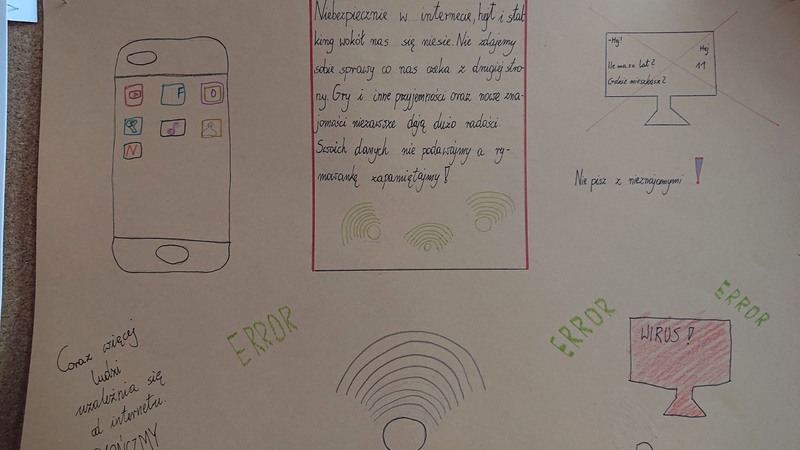 Niebezpiecznie w internecie, hejt i stal
king wokół nas się niesie. Nie zdajemy
sobie sprawy co nas czeka z drugiej stro-
ny. Gry i inne przyjemności oraz nowe zna-
jomości niezawsze dają dużo radości.
Swoich danych nie podawajmy a ry-
mowankę zapamiętajmy!
-Hej!
Hej
Ile masz lat?
11
Gdzie mieszkasz?
Nie pisz z nieznajomymi!
F
O
N
ERROR
ERROR
ERROR
WIRUS!
Coraz więcej
ludzi
uzależnia się
od internetu.